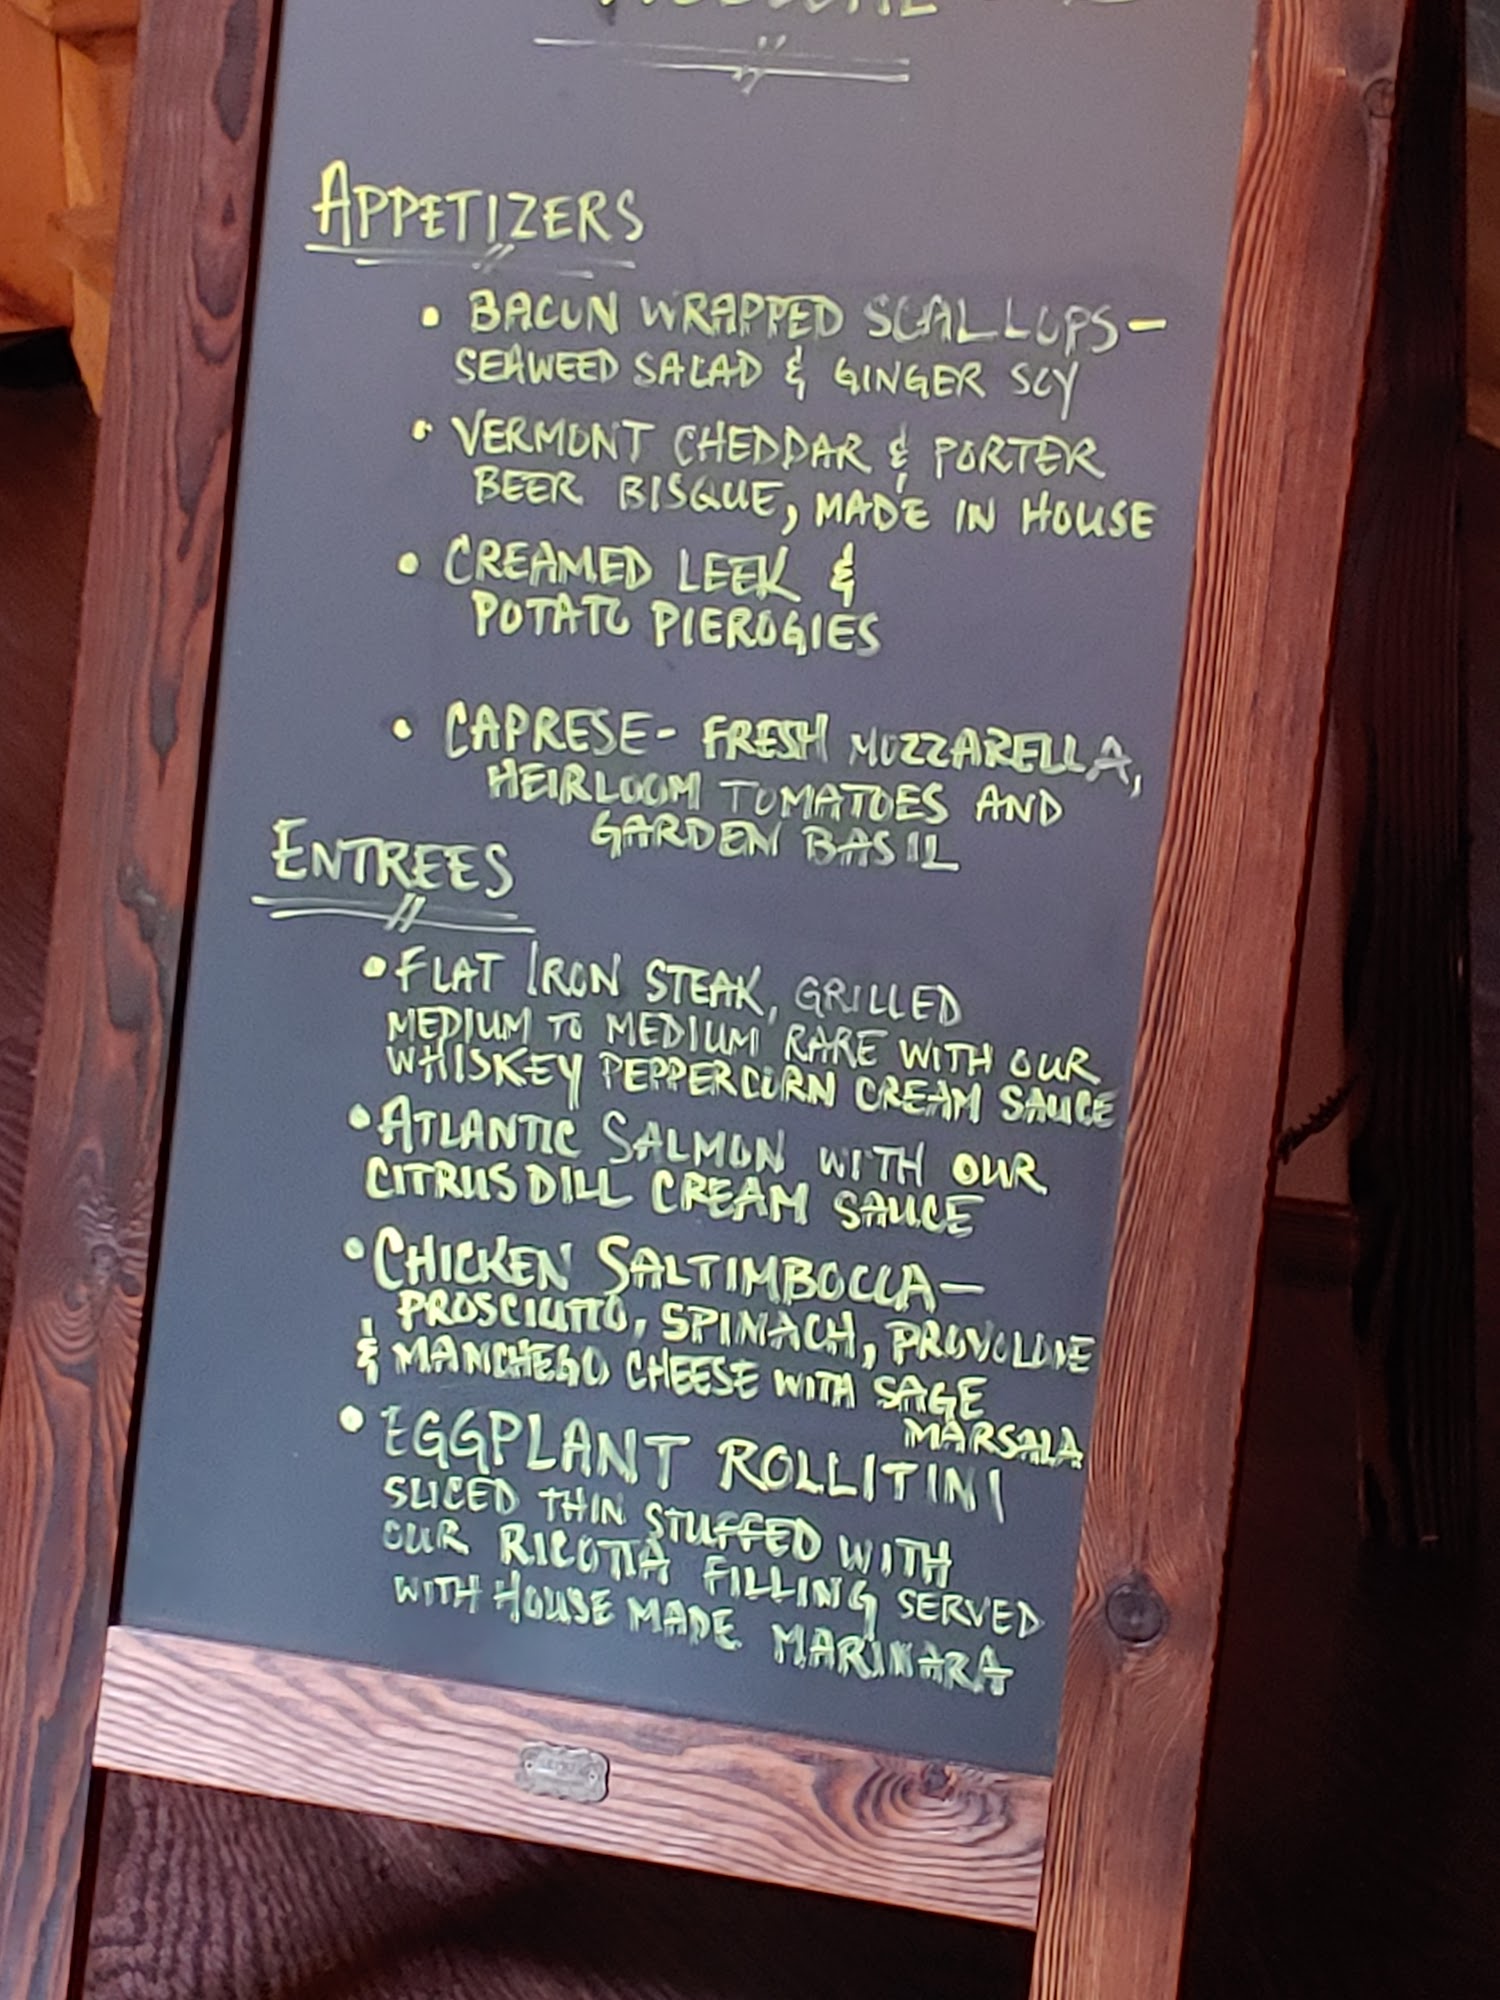 APPETIZERS
• BACON WRAPPED SCALLOPS –
SEAWEED SALAD & GINGER SOY
• VERMONT CHEDDAR & PORTER
BEER BISQUE, MADE IN HOUSE
• CREAMED LEEK &
POTATO PIEROGIES
• CAPRESE - FRESH MOZZARELLA,
HEIRLOOM TOMATOES AND
GARDEN BASIL
ENTREES
• FLAT IRON STEAK, GRILLED
MEDIUM TO MEDIUM RARE WITH OUR
WHISKEY PEPPERCORN CREAM SAUCE
• ATLANTIC SALMON WITH OUR
CITRUS DILL CREAM SAUCE
• CHICKEN SALTIMBOCCA –
PROSCIUTTO, SPINACH, PROVOLONE
& MANCHEGO CHEESE WITH SAGE
MARSALA
• EGGPLANT ROLLITINI
SLICED THIN STUFFED WITH
OUR RICOTTA FILLING SERVED
WITH HOUSE MADE MARINARA